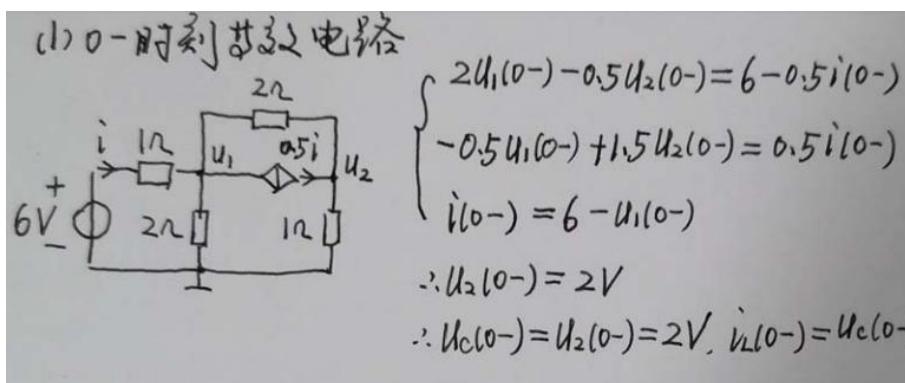 (1) 0-时刻等效电路
2Ω
i 1Ω u₁ 0.5i u₂
+
6V 2Ω 1Ω
−
2u₁(0-)-0.5u₂(0-)=6-0.5i(0-)
-0.5u₁(0-)+1.5u₂(0-)=0.5i(0-)
i(0-)=6-u₁(0-)
∴u₂(0-)=2V
∴uc(0-)=u₂(0-)=2V, iL(0-)=uc(0-